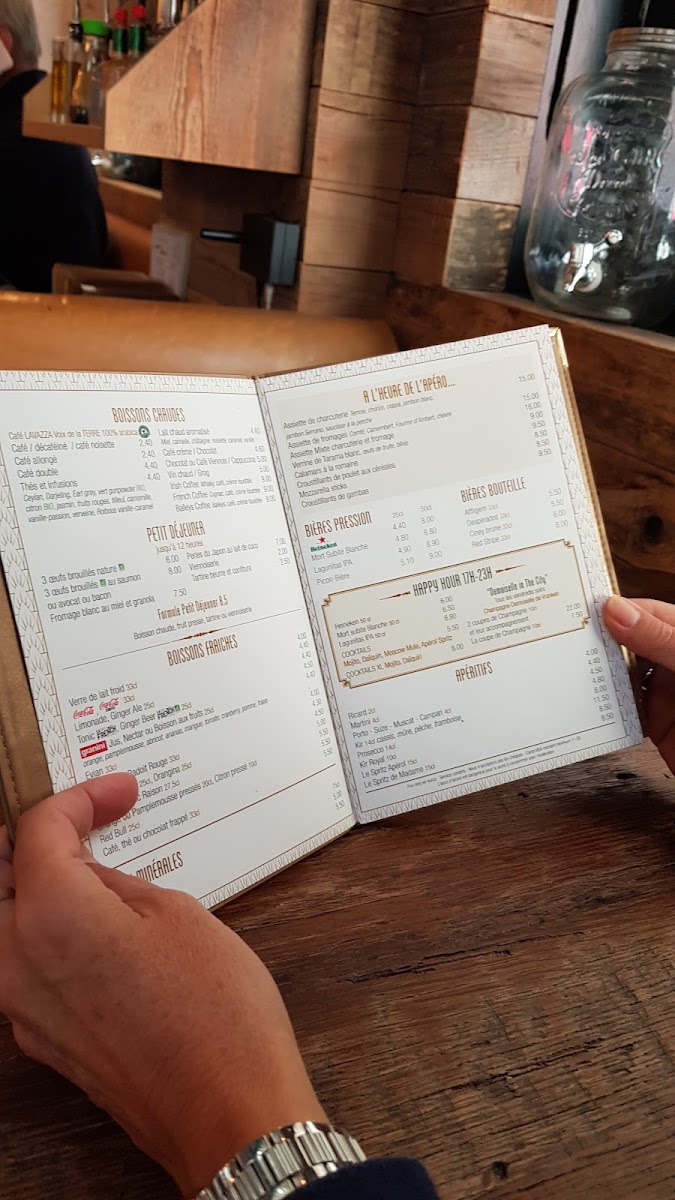 BOISSONS CHAUDES
Café LAVAZZA Voix de la TERRE 100% arabica 2,40
Café / décaféiné / café noisette 2,40
Café allongé 2,40
Café double 4,40
Thés et infusions 4,40
Ceylan, Darjeling, Earl grey, vert gunpowder BIO,
citron BIO, jasmin, fruits rouges, tilleul, camomille,
vanille-passion, verveine, Roïboos vanille-caramel
Lait chaud aromatisé 4,60
Miel, cannelle, châtaigne, noisette, caramel, vanille
Café crème / Chocolat 4,60
Chocolat ou Café Viennois / Cappuccino 5,00
Vin chaud / Grog 5,00
Irish Coffee whisky, café, crème fouettée 9,00
French Coffee Cognac, café, crème fouettée 9,00
Baileys Coffee Baileys, café, crème fouettée 9,00
PETIT DÉJEUNER
jusqu'à 12 heures
3 œufs brouillés nature 6,00
3 œufs brouillés au saumon 8,00
ou avocat ou bacon
Fromage blanc au miel et granola 7,50
Perles du Japon au lait de coco 7,00
Viennoiserie 2,00
Tartine beurre et confiture 2,50
Formule Petit Déjeuner 8.5
Boisson chaude, fruit pressé, tartine ou viennoiserie
BOISSONS FRAICHES
Verre de lait froid 33cl
Coca-Cola Coca-Cola 33cl
Limonade, Ginger Ale 25cl
Tonic FRENCH, Ginger Beer FRENCH 25cl
granini Jus, Nectar ou Boisson aux fruits 25cl
orange, pamplemousse, abricot, ananas, mangue, tomate, cranberry, pomme, fraise
Evian 33cl
Badoit Rouge 33cl
25cl, Orangina 25cl
Raisin 27.5cl
ou Pamplemousse pressés 20cl, Citron pressé 10cl
Red Bull 25cl
Café, thé ou chocolat frappé 33cl
MINÉRALES
A L'HEURE DE L'APÉRO...
Assiette de charcuterie Terrine, chorizo, coppa, jambon blanc, 15,00
jambon Serrano, saucisse à la perche
Assiette de fromages Comté, Camembert, Fourme d'Ambert, chèvre 15,00
Assiette Mixte charcuterie et fromage 16,00
Verrine de Tarama blanc, œufs de truite, olive 9,00
Calamars à la romaine 9,50
Croustillants de poulet aux céréales 8,50
Mozzarella sticks 8,50
Croustillants de gambas 9,50
BIÈRES PRESSION
25cl 50cl
Heineken 4,40 8,00
Mort Subite Blanche 4,60 8,60
Lagunitas IPA 4,90 8,90
Picon Bière 5,10 9,00
BIÈRES BOUTEILLE
Affligem 33cl 5,50
Desperados 33cl 5,50
Ciney brune 33cl 6,00
Red Stripe 33cl 6,00
HAPPY HOUR 17H-23H
Heineken 50 cl 6,00
Mort subite Blanche 50 cl 6,50
Lagunitas IPA 50 cl 6,80
COCKTAILS 5,50
Mojito, Daïquiri, Moscow Mule, Apérol Spritz
COCKTAILS XL Mojito, Daïquiri 9,00
"Demoiselle in The City"
Tous les vendredis soirs
Champagne Demoiselle de Vranken
2 coupes de Champagne 10cl 22,00
et leur accompagnement
La coupe de Champagne 10cl 7,50
APÉRITIFS
Ricard 2cl 4,00
Martini 4cl 4,40
Porto - Suze - Muscat - Campari 4cl 4,50
Kir 14cl cassis, mûre, pêche, framboise 4,80
Prosecco 14cl 6,00
Kir Royal 10cl 11,50
Le Spritz Apérol 15cl 8,50
Le Spritz de Madame 15cl 8,50